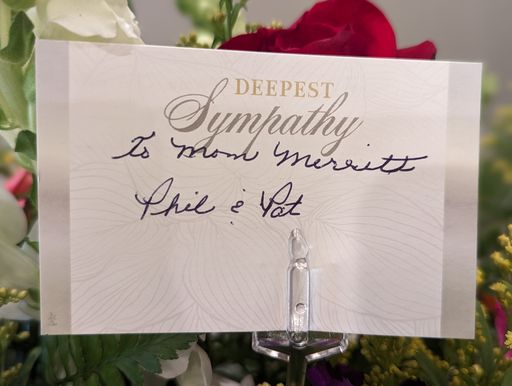 DEEPEST
Sympathy
To Mom Merritt
Phil & Pat